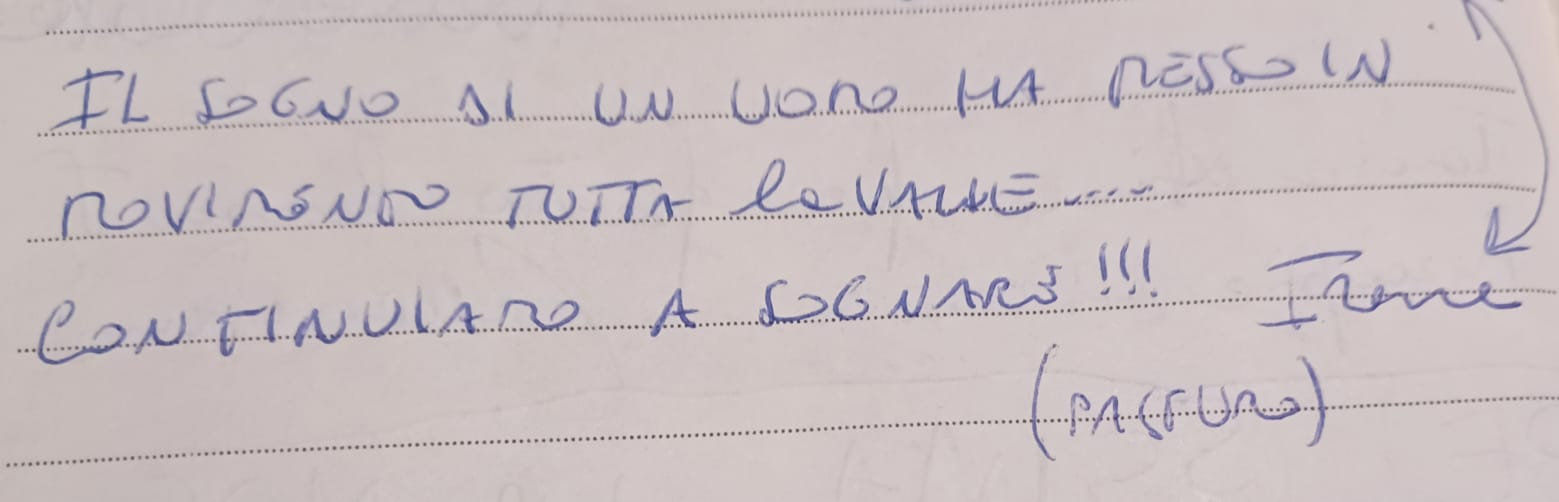 IL SOGNO DI UN UOMO HA MESSO IN
MOVIMENTO TUTTA la VALLE.....
CONTINUIAMO A SOGNARE!!! Irene
(PASTURO)